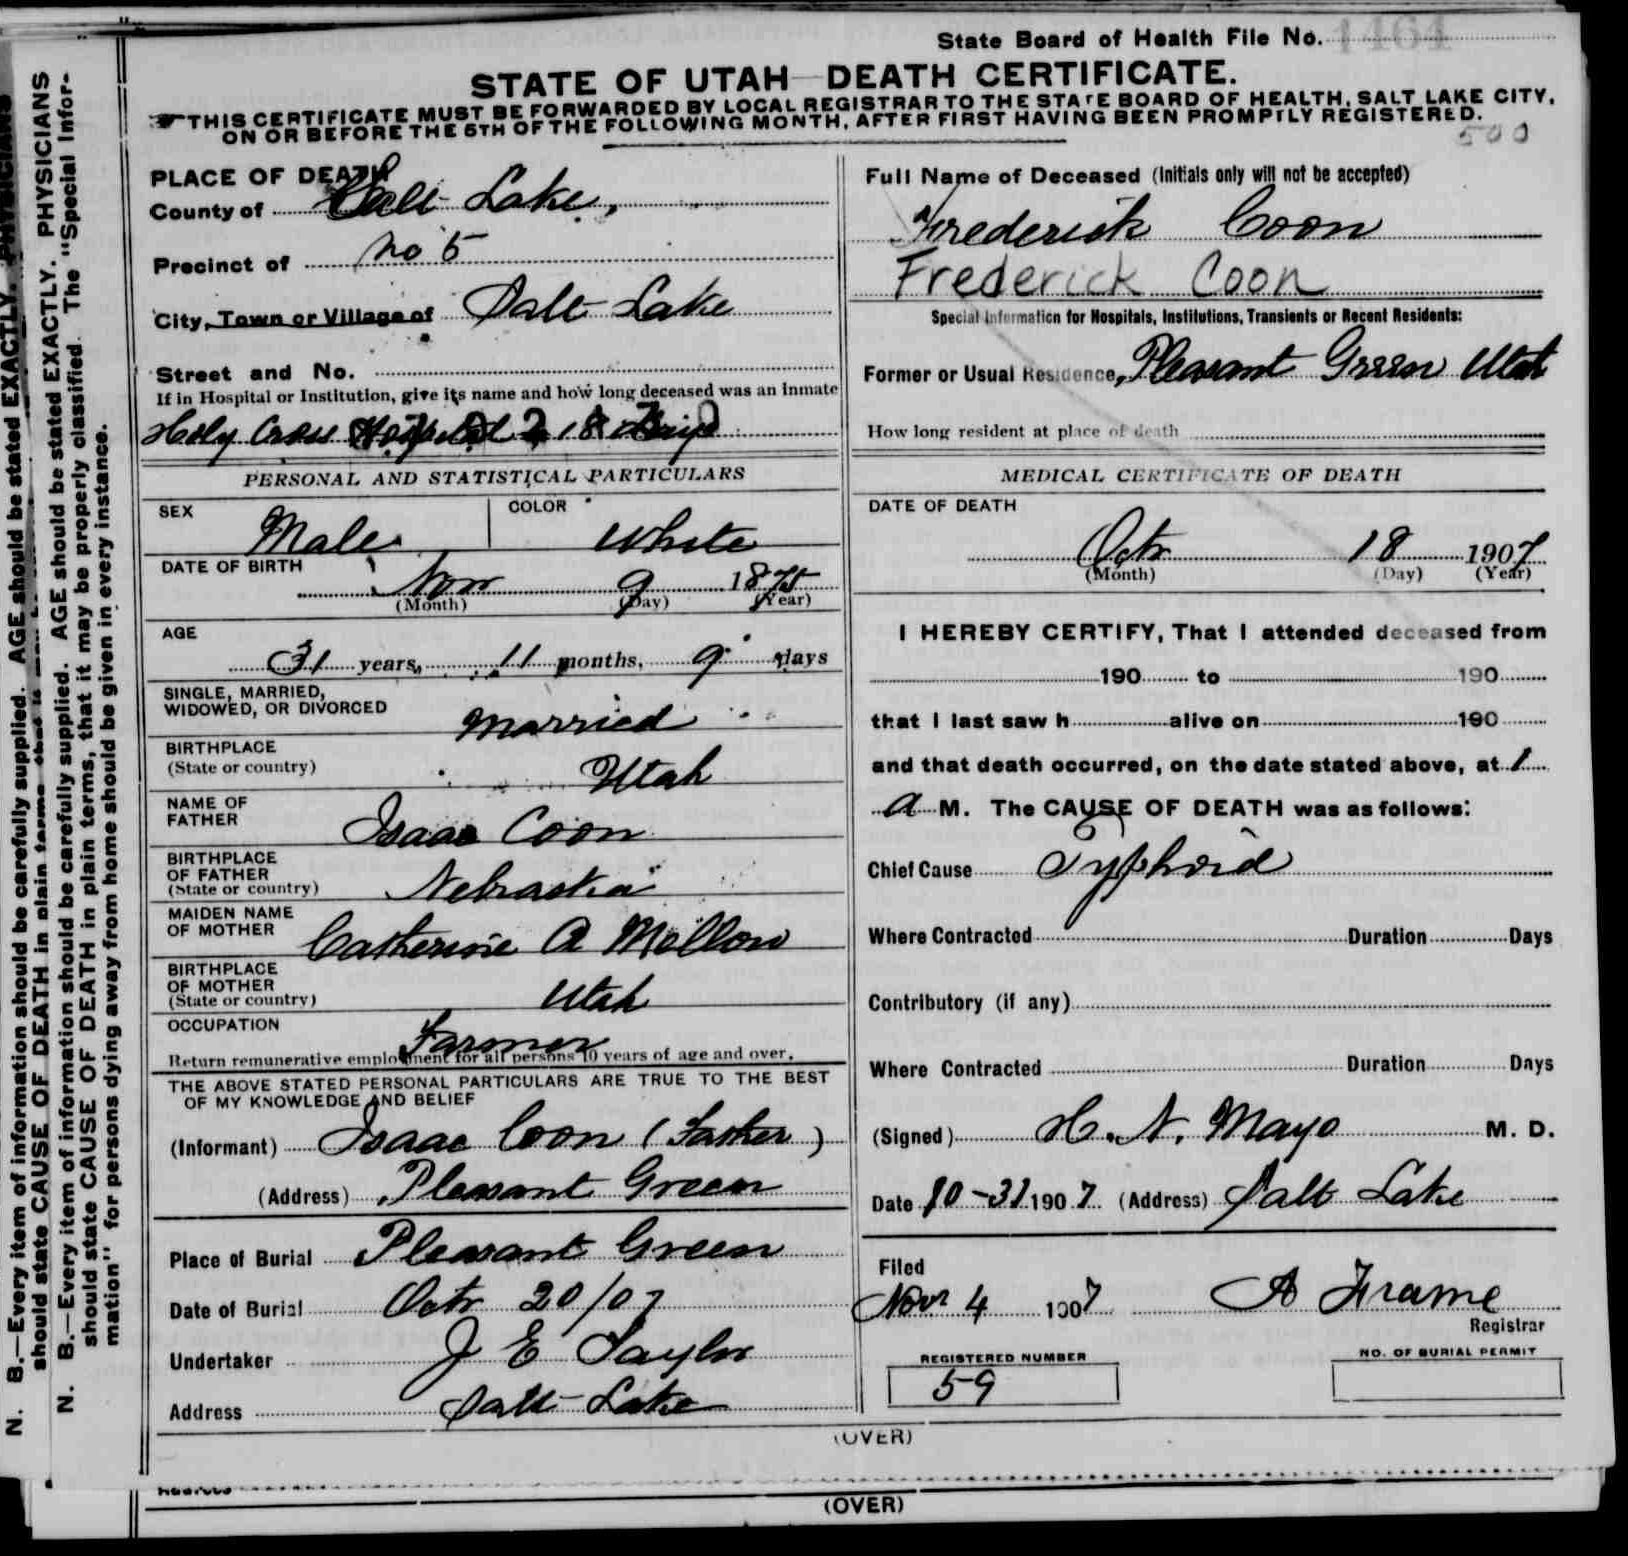 State Board of Health File No. 1464
STATE OF UTAH—DEATH CERTIFICATE.
THIS CERTIFICATE MUST BE FORWARDED BY LOCAL REGISTRAR TO THE STATE BOARD OF HEALTH, SALT LAKE CITY,
ON OR BEFORE THE 5TH OF THE FOLLOWING MONTH, AFTER FIRST HAVING BEEN PROMPTLY REGISTERED.
500
PLACE OF DEATH
County of Salt Lake,
Precinct of No 5
City, Town or Village of Salt Lake
Street and No.
If in Hospital or Institution, give its name and how long deceased was an inmate
Holy Cross Hospital 18 Days
PERSONAL AND STATISTICAL PARTICULARS
SEX Male COLOR White
DATE OF BIRTH Nov 9 1875
(Month) (Day) (Year)
AGE
31 years, 11 months, 9 days
SINGLE, MARRIED,
WIDOWED, OR DIVORCED Married
BIRTHPLACE
(State or country) Utah
NAME OF
FATHER Isaac Coon
BIRTHPLACE
OF FATHER
(State or country) Nebraska
MAIDEN NAME
OF MOTHER Catherine A Mellow
BIRTHPLACE
OF MOTHER
(State or country) Utah
OCCUPATION Farmer
Return remunerative employment for all persons 10 years of age and over.
THE ABOVE STATED PERSONAL PARTICULARS ARE TRUE TO THE BEST
OF MY KNOWLEDGE AND BELIEF
(Informant) Isaac Coon (Father)
(Address) Pleasant Green
Place of Burial Pleasant Green
Date of Burial Octr 20/07
Undertaker J E Taylor
Address Salt Lake
Full Name of Deceased (Initials only will not be accepted)
Frederick Coon
Frederick Coon
Special Information for Hospitals, Institutions, Transients or Recent Residents:
Former or Usual Residence, Pleasant Green Utah
How long resident at place of death
MEDICAL CERTIFICATE OF DEATH
DATE OF DEATH
Octr 18 1907
(Month) (Day) (Year)
I HEREBY CERTIFY, That I attended deceased from
190 to 190
that I last saw h alive on 190
and that death occurred, on the date stated above, at 1
a M. The CAUSE OF DEATH was as follows:
Chief Cause Typhoid
Where Contracted Duration Days
Contributory (if any)
Where Contracted Duration Days
(Signed) H. N. Mayo M. D.
Date 10-31 1907 (Address) Salt Lake
Filed
Novr 4 1907 A Frame
Registrar
REGISTERED NUMBER
59
NO. OF BURIAL PERMIT
(OVER)
Address
(OVER)
N. B.—Every item of information should be carefully supplied. AGE should be stated EXACTLY. PHYSICIANS
should state CAUSE OF DEATH in plain terms
N. B.—Every item of information should be carefully supplied. AGE should be stated EXACTLY. PHYSICIANS
should state CAUSE OF DEATH in plain terms, that it may be properly classified. The "Special Infor-
mation" for persons dying away from home should be given in every instance.